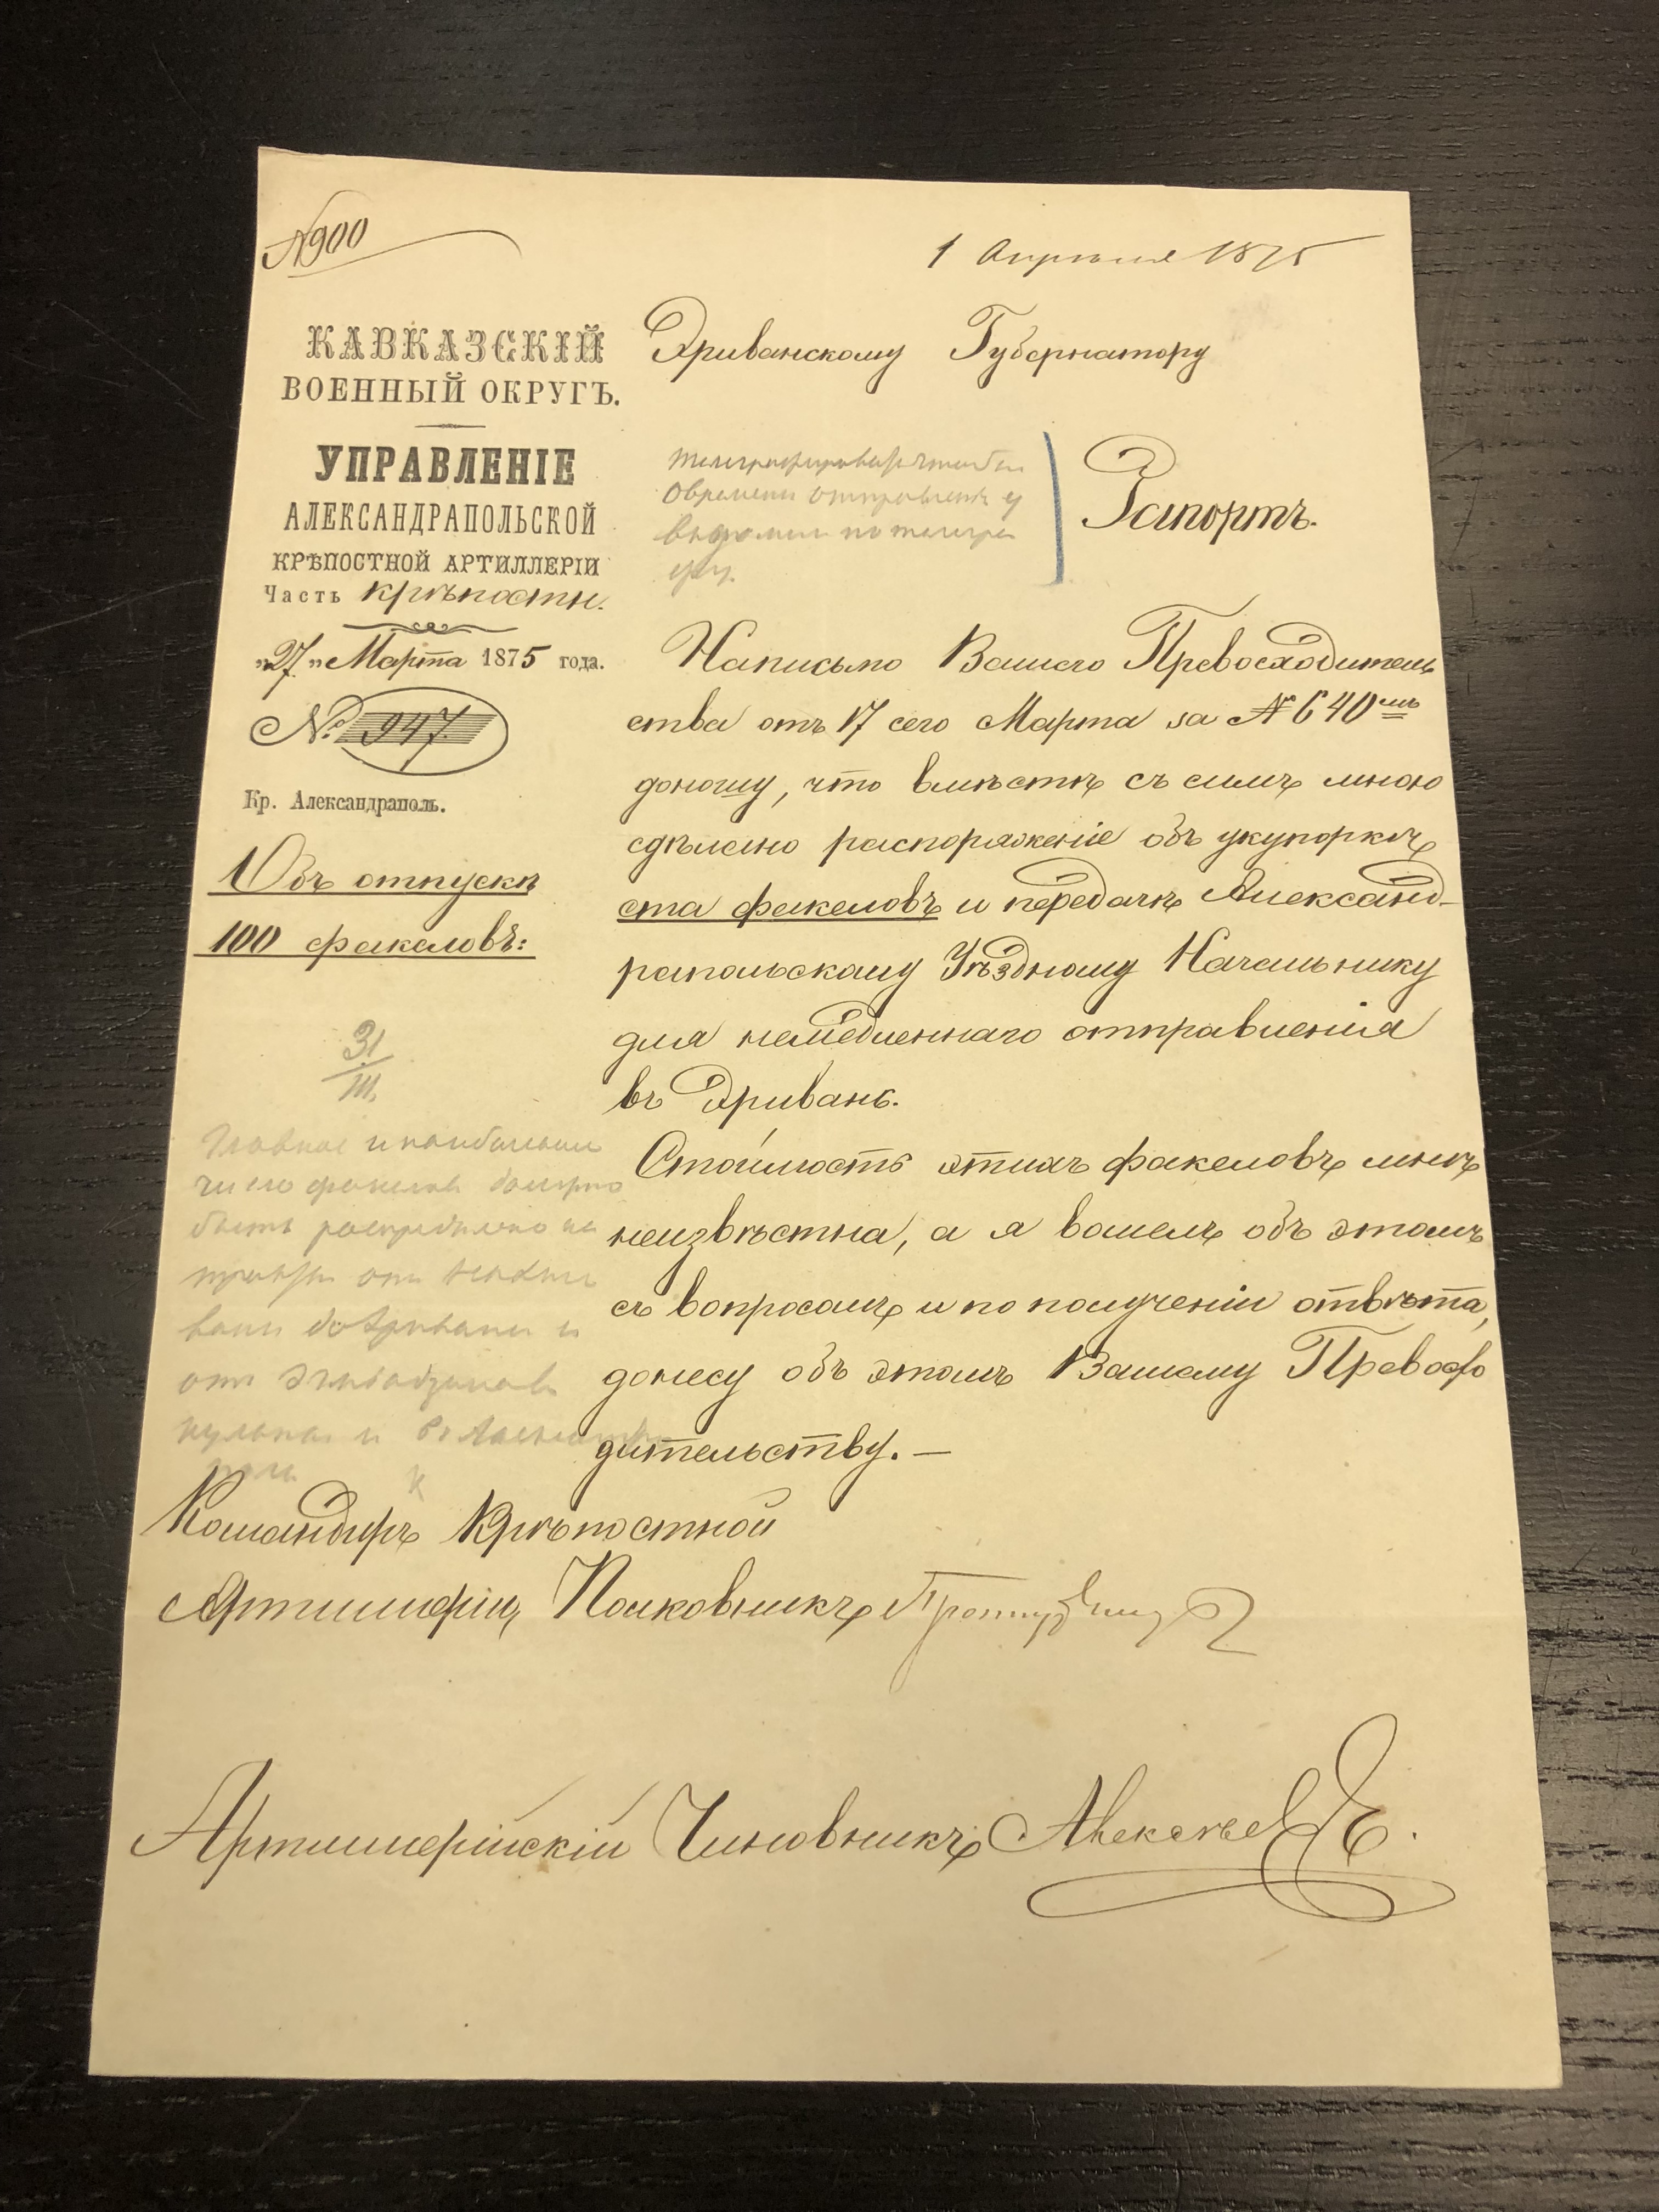 №900
1 Апреля 1875
КАВКАЗСКІЙ
ВОЕННЫЙ ОКРУГЪ.
УПРАВЛЕНІЕ
АЛЕКСАНДРАПОЛЬСКОЙ
КРѢПОСТНОЙ АРТИЛЛЕРІИ
Часть крѣпостн.
"27" Марта 1875 года.
№ 947
Кр. Александраполь.
Объ отпускѣ
100 факеловъ:
31
III.
Главное и наибольшее
число факеловъ должно
быть распредѣлено на
до Эривани и
от
и
Эриванскому Губернатору
Телеграфировать чтобы
о времени отправленія
по телегра
фу.
Рапортъ.
На письмо Вашего Превосходитель
ства отъ 17 сего Марта за № 640мъ
доношу, что вмѣстѣ съ симъ мною
сдѣлано распоряженіе объ укупоркѣ
ста факеловъ и передачѣ Александ-
рапольскому Уѣздному Начальнику
для немедленнаго отправленія
въ Эривань.
Стоимость этихъ факеловъ мнѣ
неизвѣстна, а я вошелъ объ этомъ
съ вопросомъ и по полученіи отвѣта,
донесу объ этомъ Вашему Превосхо
дительству. —
Командиръ Крѣпостной
Артиллеріи, Полковникъ
Артиллерійскій Чиновникъ Алексѣевъ